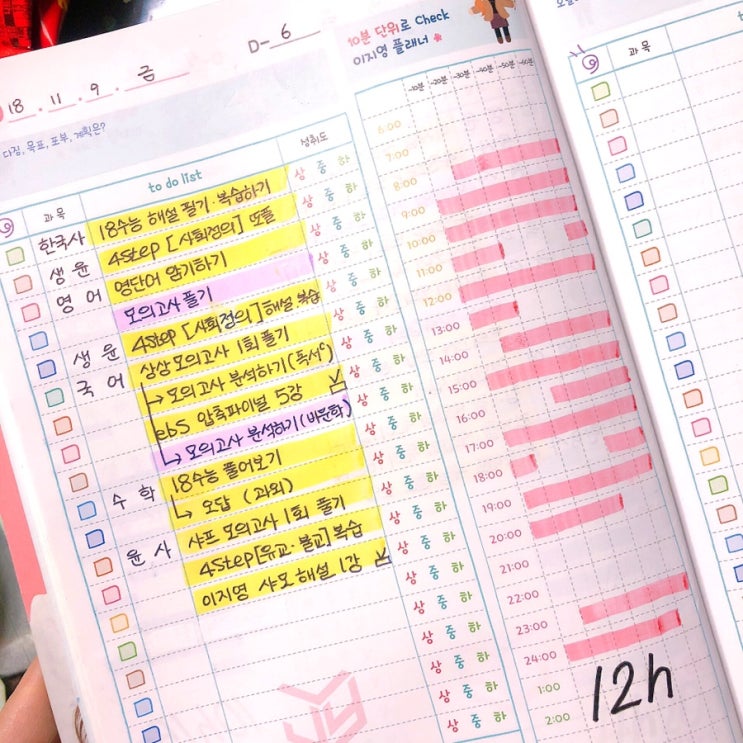 D-6
18.11.9.금
다짐, 목표, 포부, 계획은?
과목 to do list 성취도
한국사 18수능 해설 필기 복습하기 상 중 하
생윤 4step [사회정의] 또풀 상 중 하
영어 영단어 암기하기 상 중 하
모의고사 풀기 상 중 하
생윤 4step [사회정의] 해설 복습 상 중 하
국어 상상 모의고사 1회 풀기 상 중 하
→ 모의고사 분석하기 (독서) 상 중 하
ebs 압축파이널 5강 상 중 하
→ 모의고사 분석하기 (비문학) 상 중 하
수학 18수능 풀어보기 상 중 하
↳ 오답 (과외) 상 중 하
윤사 샤프 모의고사 1회 풀기 상 중 하
4step [유교·불교] 복습 상 중 하
이지영 샤모 해설 1강 상 중 하
상 중 하
상 중 하
상 중 하
상 중 하
10분 단위로 Check
이지영 플래너
~10분 ~20분 ~30분 ~40분 ~50분 ~60분
6:00
7:00
8:00
9:00
10:00
11:00
12:00
13:00
14:00
15:00
16:00
17:00
18:00
19:00
20:00
21:00
22:00
23:00
24:00
1:00
2:00
12h
과목